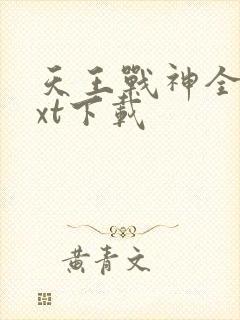 天王戰神全
xt下載
黃青文